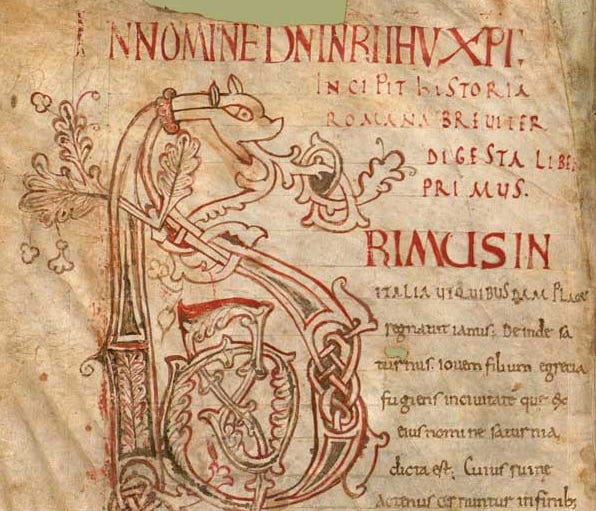 IN NOMINE DNI NRI IHU XPI.
INCIPIT hISTORIA
ROMANA BREUITER
DIGESTA LIBER
PRIMUS.
PRIMUS IN
ITALIA UT QUIBUSDAM PLACE
regnauit ianus. Deinde sa
turnus. iouem filium egrecia
fugiens inciuitate que ex
eius nomine saturnia
dicta est. Cuius ruine
Actenus cernuntur infinibus